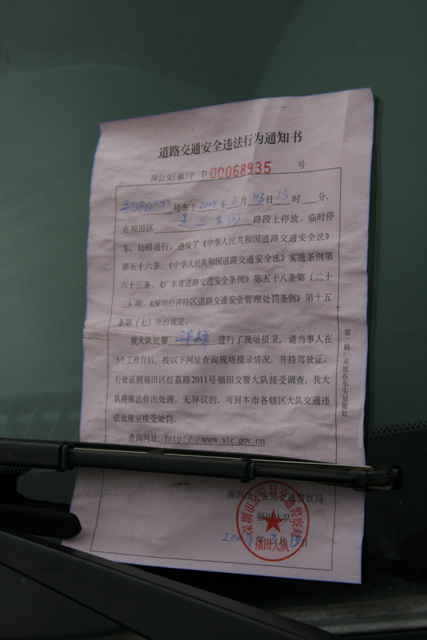 道路交通安全违法行为通知书
深公交(福)字 D 00068935 号
号车于 200 年 月 日15时 分,
在福田区 路段上停放、临时停
车,妨碍通行,违反了《中华人民共和国道路交通安全法》
第五十六条、《中华人民共和国道路交通安全法》实施条例第
六十三条、《广东省道路交通安全条例》第五十八条第(二十
二)项、《深圳经济特区道路交通安全管理处罚条例》第十五
条第(七)项的规定。
我大队民警 进行了现场摄录。请当事人在
5个工作日后,按以下网址查询现场摄录情况,并持驾驶证、
行驶证到福田区红荔路2011号福田交警大队接受调查。我大
队将依法作出处理。无异议的,可到本市各辖区大队交通违
法处理室接受处罚。
查询网址:http://www.stc.gov.cn
深圳市公安局交通警察局
福田大队
200 年 月 日
深圳市公安局交通警察局
福田大队
第二联:夹放在车头显眼处